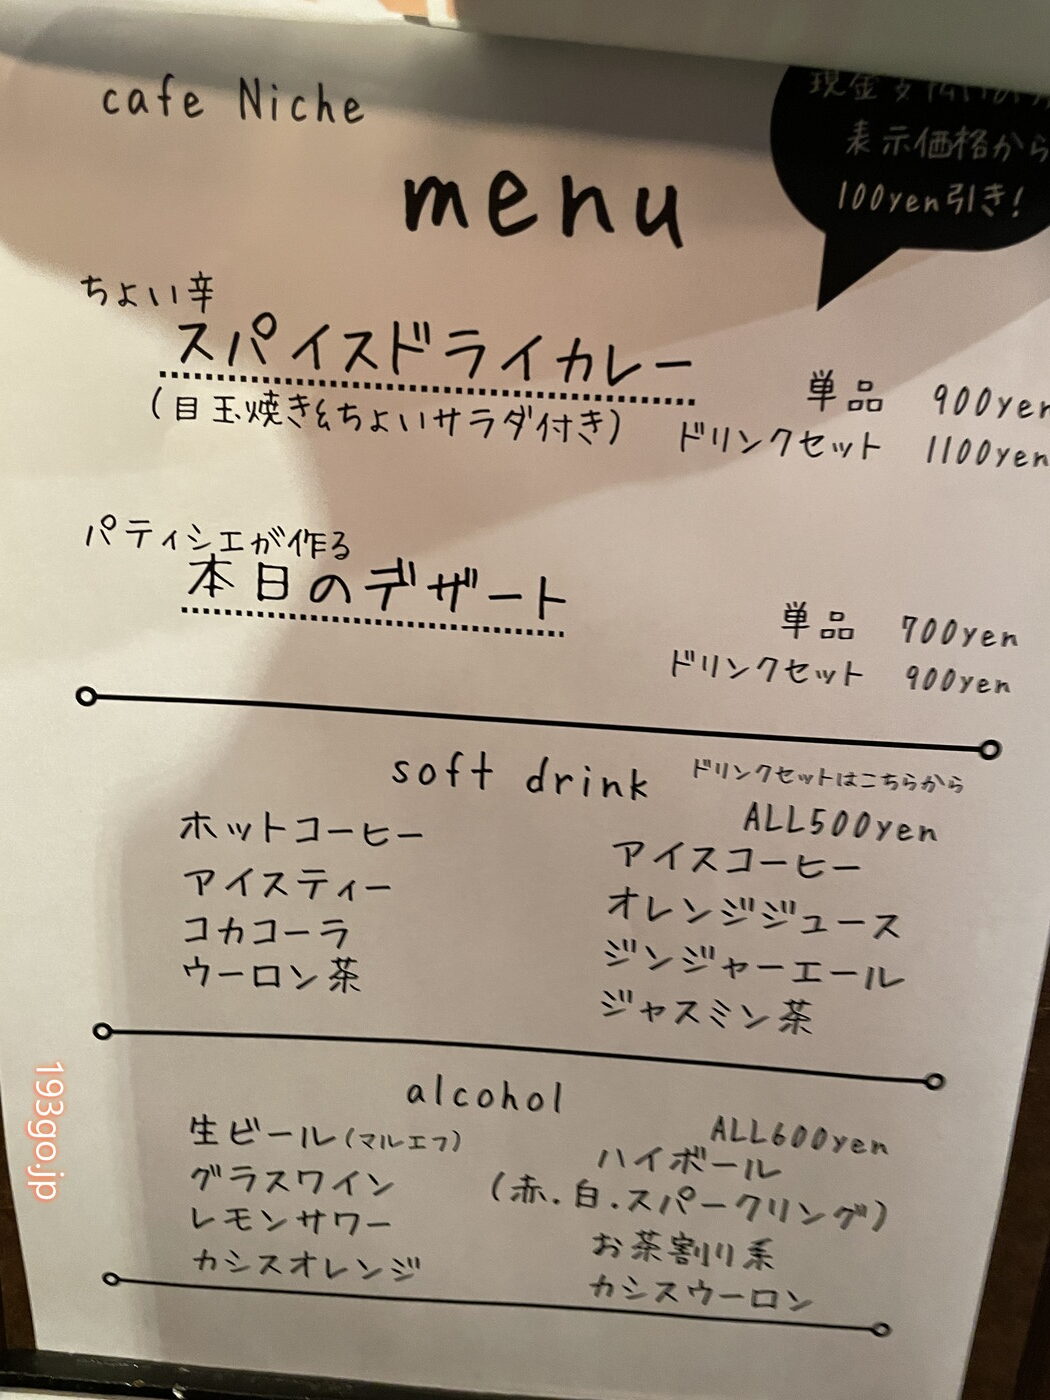 cafe Niche
menu
表示価格から
100yen引き!
ちょい辛
スパイスドライカレー
(目玉焼き&ちょいサラダ付き)
単品 900yen
ドリンクセット 1100yen
パティシエが作る
本日のデザート
単品 700yen
ドリンクセット 900yen
soft drink ドリンクセットはこちらから
ALL500yen
ホットコーヒー アイスコーヒー
アイスティー オレンジジュース
コカコーラ ジンジャーエール
ウーロン茶 ジャスミン茶
alcohol
ALL600yen
生ビール(マルエフ) ハイボール
グラスワイン (赤.白.スパークリング)
レモンサワー お茶割り系
カシスオレンジ カシスウーロン
193go.jp